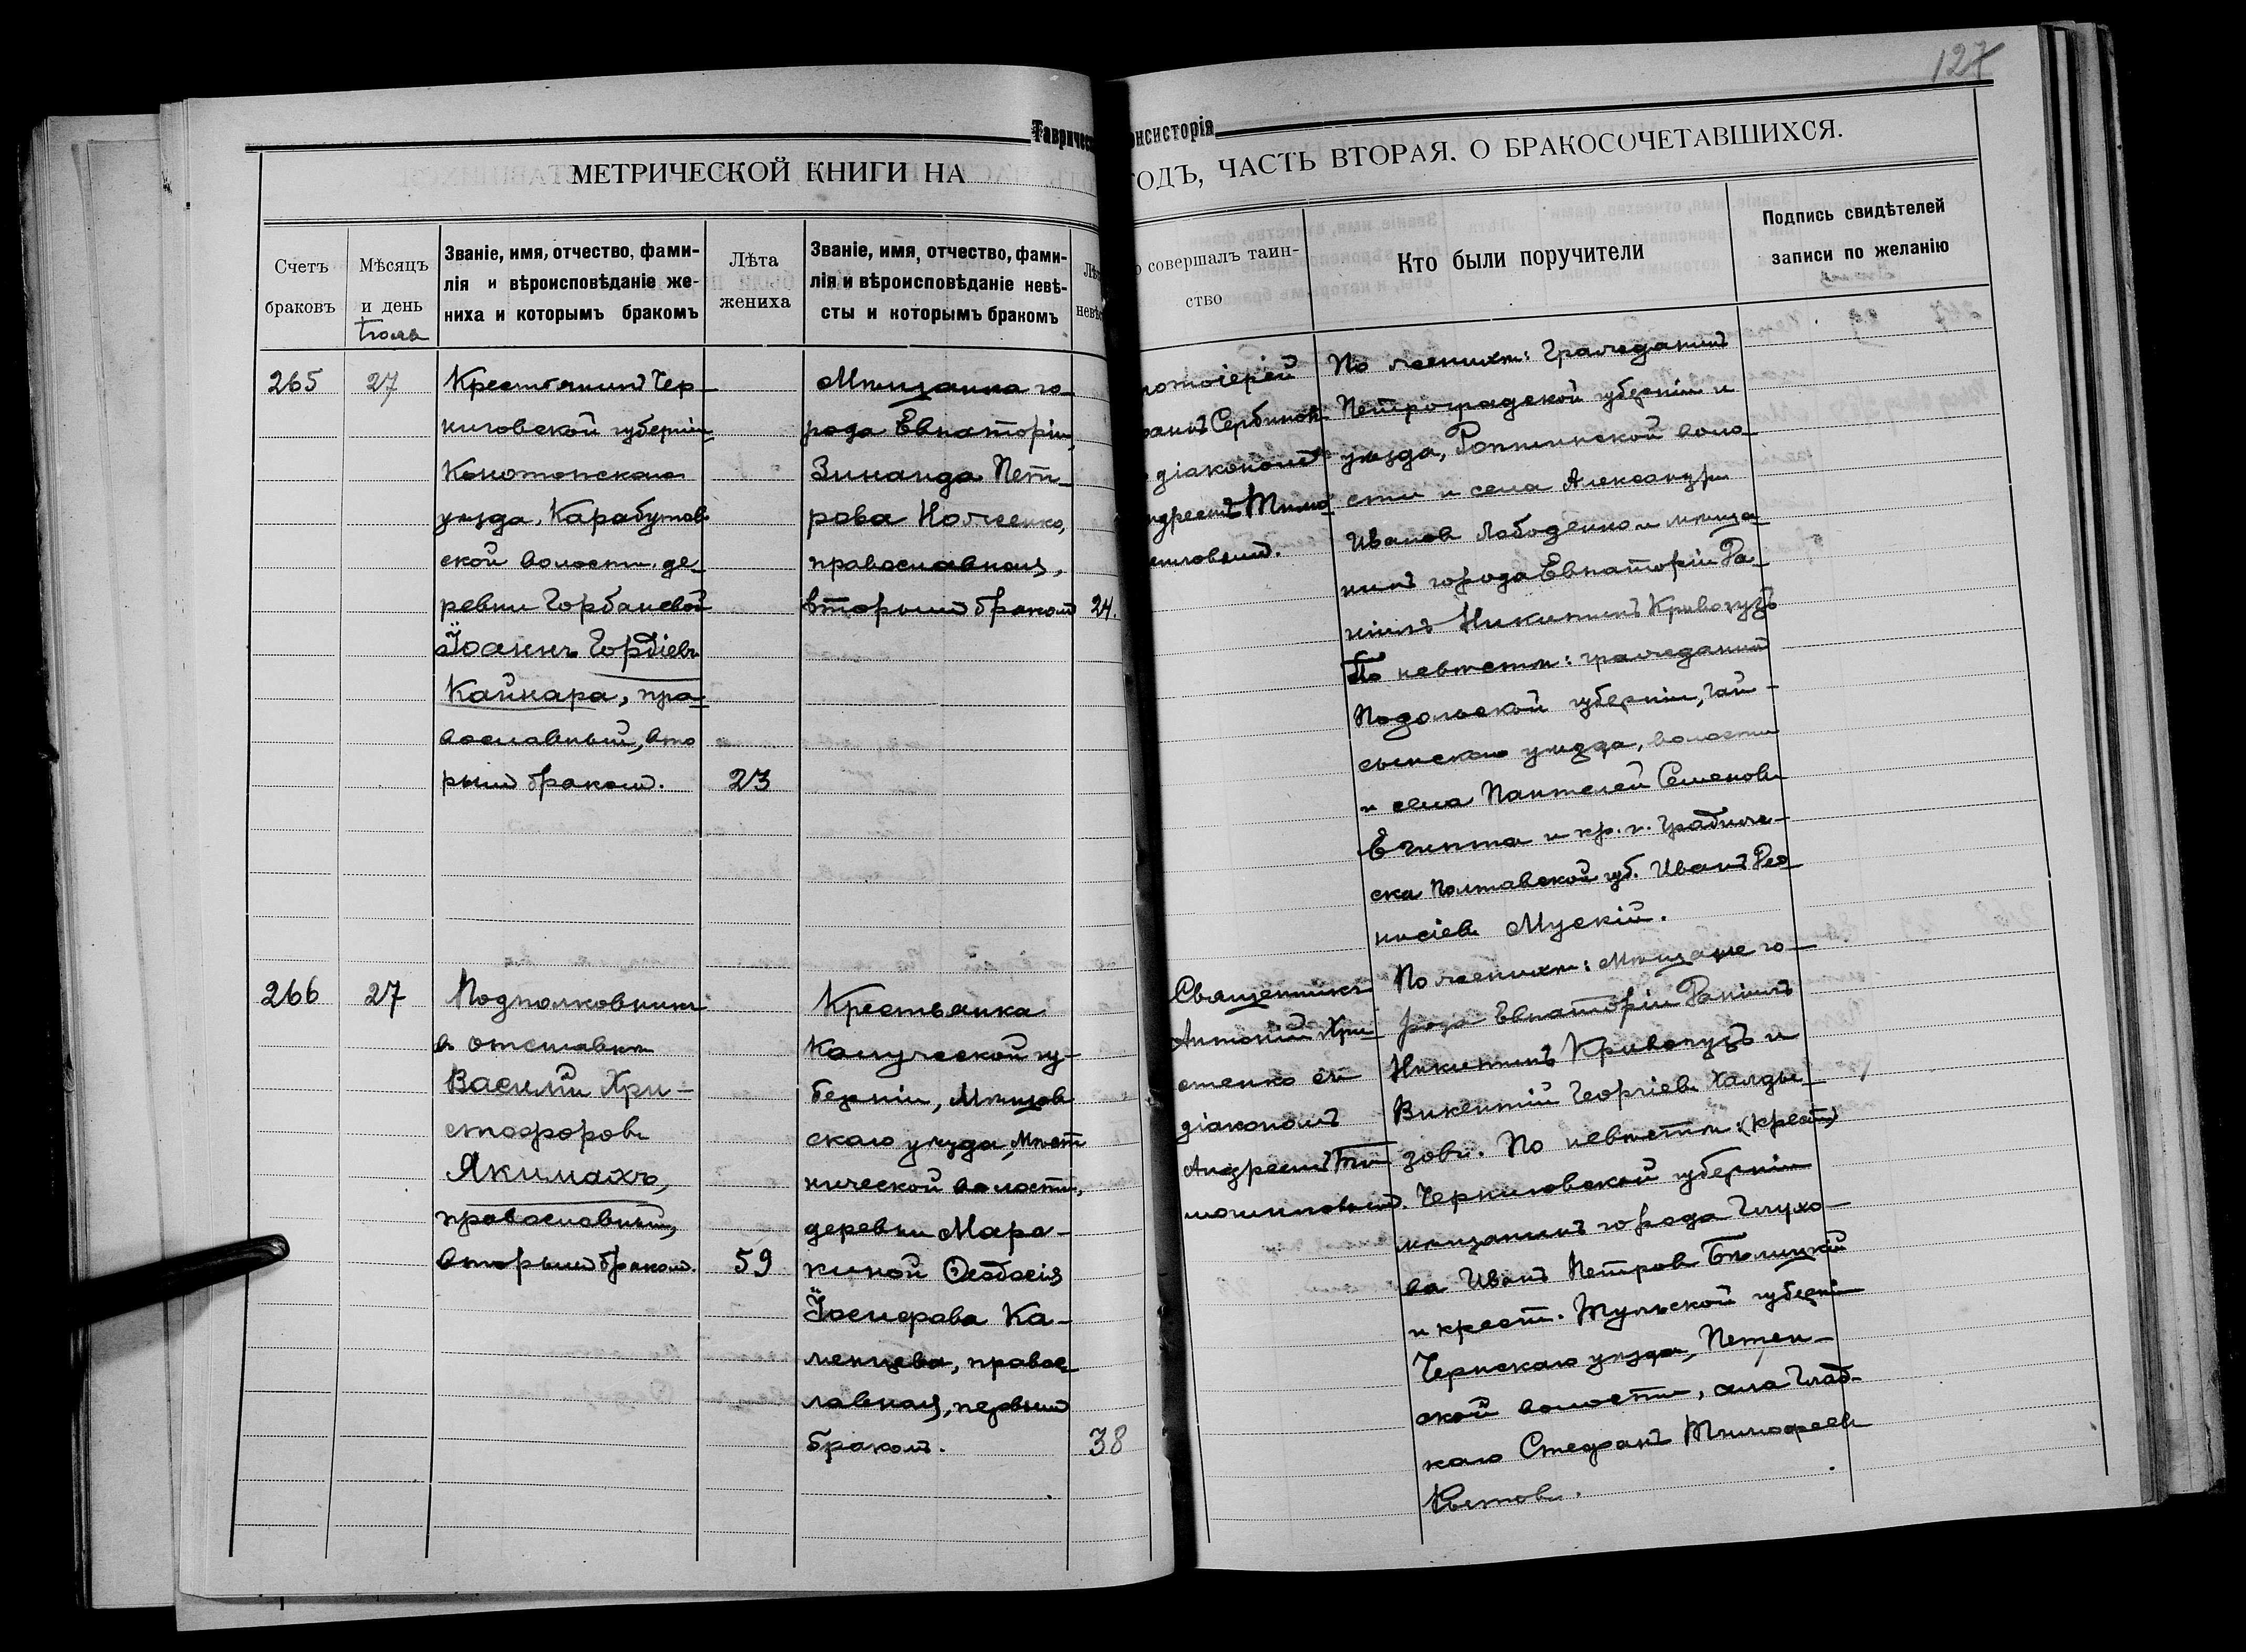 127
Таврическ
онсисторія
МЕТРИЧЕСКОЙ КНИГИ НА
ГОДЪ, ЧАСТЬ ВТОРАЯ, О БРАКОСОЧЕТАВШИХСЯ.
Счетъ
браковъ
Мѣсяцъ
и день
Іюль
Званіе, имя, отчество, фами-
лія и вѣроисповѣданіе же-
ниха и которымъ бракомъ
Лѣта
жениха
Званіе, имя, отчество, фами-
лія и вѣроисповѣданіе невѣ-
сты и которымъ бракомъ
Лѣ
невѣс
о совершалъ таин-
ство
Кто были поручители
Подпись свидѣтелей
записи по желанію
265
27
Крестьянинъ Чер-
ниговской губерніи
Конотопскаго
уѣзда, Карабутов
ской волости, де-
ревни Горбаневой
Іоаннъ Гордіевъ
Кайнара, пра-
вославный, вто
рым бракомъ.
23
Мѣщанка го-
рода Евпаторіи,
Зинаида Пет-
рова Ноженко,
православная,
вторымъ бракомъ
24.
ротоіерей
Сербиновъ
діакономъ
ндреемъ Тимо
По женихѣ: Гражданинъ
Петроградской губерніи и
уѣзда, Ропшинской воло-
сти и села Александръ
Иванов Лободенко и мѣща-
нинъ города Евпаторіи Фа-
ніилъ Никитинъ Кривопузъ
По невѣстѣ: гражданинъ
Подольской губерніи, Гай-
сынскаго уѣзда, волости
и села Пантелей Семеновъ
Египта и кр. г. Градиж-
ска Полтавской губ. Иванъ Део
нисіевъ Мускій.
266
27
Подполковникъ
въ отставкѣ
Василій Хри-
стофоровъ
Якимахъ,
православный,
вторымъ бракомъ.
59
Крестьянка
Калужской гу-
берніи, Мѣщов
скаго уѣзда, Мѣст
нической волости,
деревни Мара-
киной Ѳеодосія
Іосифова Ка-
менцева, правос
лавная, первымъ
бракомъ.
38
Священникъ
Антоній Хри-
стенко съ
діакономъ
Андреемъ Ти-
мошиловскимъ.
По женихѣ: Мѣщане го-
рода Евпаторіи Фаніилъ
Никитинъ Кривопузъ и
Викентій Георгіевъ Халды-
зовъ. По невѣстѣ: (крест)
Черниговской губерніи
мѣщанинъ города Глухо-
ва Иванъ Петровъ Бѣлицкій
и крест. Тульской губерніи
Чернскаго уѣзда, Петен-
ской волости, села Глад-
каго Стефанъ Тимофеевъ